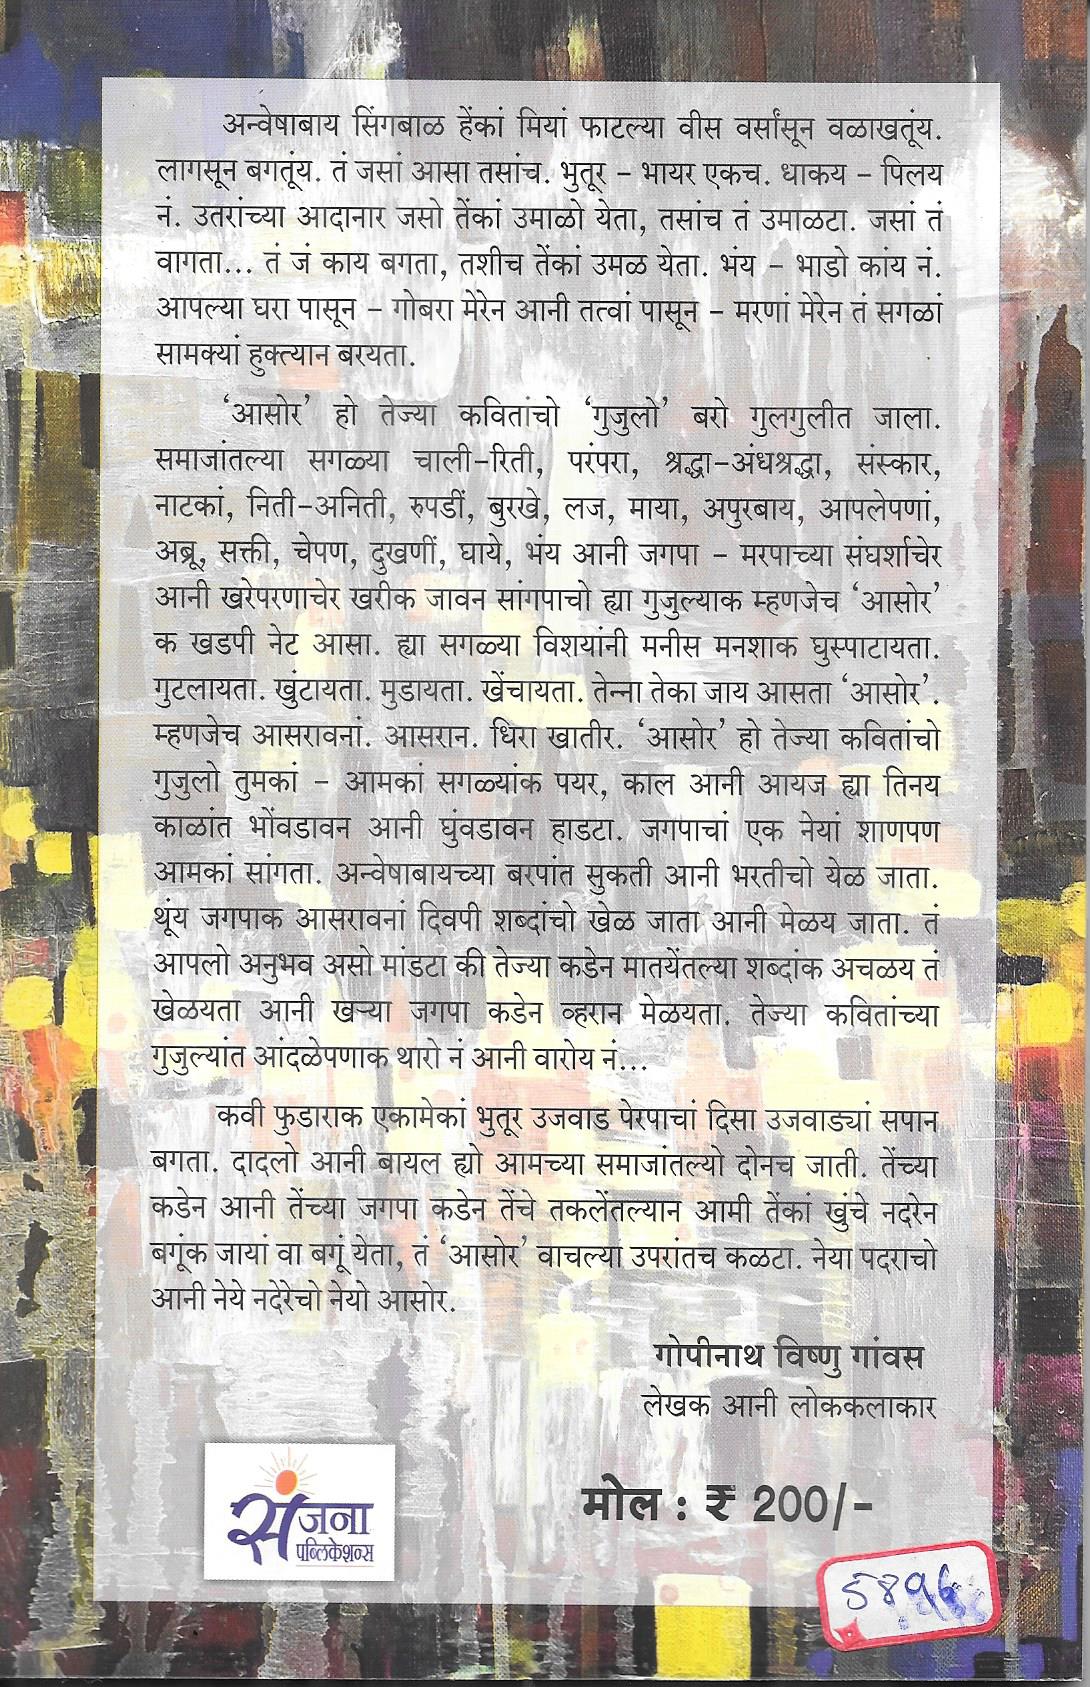 अन्वेषाबाय सिंगबाळ हेंकां मियां फाटल्या वीस वर्सांसून वळाखतूंय.
लागसून बगतूंय. तं जसां आसा तसांच. भुतूर – भायर एकच. धाकय – पिलय
नं. उतरांच्या आदानार जसो तेंकां उमाळो येता, तसांच तं उमाळटा. जसां तं
वागता... तं जं काय बगता, तशीच तेंकां उमळ येता. भंय – भाडो कांय नं.
आपल्या घरा पासून – गोबरा मेरेन आनी तत्वां पासून – मरणां मेरेन तं सगळां
सामक्यां हुक्त्यान बरयता.
‘आसोर’ हो तेज्या कवितांचो ‘गुजुलो’ बरो गुलगुलीत जाला.
समाजांतल्या सगळ्या चाली-रिती, परंपरा, श्रद्धा-अंधश्रद्धा, संस्कार,
नाटकां, निती-अनिती, रुपडीं, बुरखे, लज, माया, अपुरबाय, आपलेपणां,
अब्रू, सक्ती, चेपण, दुखणीं, घाये, भंय आनी जगपा – मरपाच्या संघर्शाचेर
आनी खरेपरणाचेर खरीक जावन सांगपाचो ह्या गुजुल्याक म्हणजेच ‘आसोर’
क खडपी नेट आसा. ह्या सगळ्या विशयांनी मनीस मनशाक घुस्पाटायता.
गुटलायता. खुंटायता. मुडायता. खेंचायता. तेन्ना तेका जाय आसता ‘आसोर’.
म्हणजेच आसरावनां. आसरान. धिरा खातीर. ‘आसोर’ हो तेज्या कवितांचो
गुजुलो तुमकां – आमकां सगळ्यांक पयर, काल आनी आयज ह्या तिनय
काळांत भोंवडावन आनी घुंवडावन हाडटा. जगपाचां एक नेयां शाणपण
आमकां सांगता. अन्वेषाबायच्या बरपांत सुकती आनी भरतीचो येळ जाता.
थूंय जगपाक आसरावनां दिवपी शब्दांचो खेळ जाता आनी मेळय जाता. तं
आपलो अनुभव असो मांडटा की तेज्या कडेन मातयेंतल्या शब्दांक अचळय तं
खेळयता आनी खऱ्या जगपा कडेन व्हरान मेळयता. तेज्या कवितांच्या
गुजुल्यांत आंदळेपणाक थारो नं आनी वारोय नं...
कवी फुडाराक एकामेकां भुतूर उजवाड पेरपाचां दिसा उजवाड्यां सपान
बगता. दादलो आनी बायल ह्यो आमच्या समाजांतल्यो दोनच जाती. तेंच्या
कडेन आनी तेंच्या जगपा कडेन तेंचे तकलेंतल्यान आमी तेंकां खुंचे नदरेन
बगूंक जायां वा बगूं येता, तं ‘आसोर’ वाचल्या उपरांतच कळटा. नेया पदराचो
आनी नेये नदेरेचो नेयो आसोर.
गोपीनाथ विष्णु गांवस
लेखक आनी लोककलाकार
संजना
पब्लिकेशन्स
मोल : ₹ 200/-